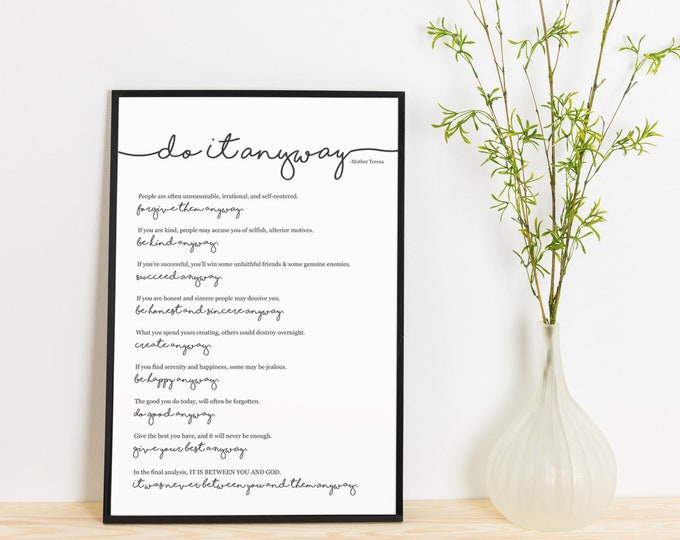 do it anyway
-Mother Teresa
People are often unreasonable, irrational, and self-centered.
forgive them anyway.
If you are kind, people may accuse you of selfish, ulterior motives.
be kind anyway.
If you're successful, you'll win some unfaithful friends & some genuine enemies.
succeed anyway.
If you are honest and sincere people may deceive you.
be honest and sincere anyway.
What you spend years creating, others could destroy overnight.
create anyway.
If you find serenity and happiness, some may be jealous.
be happy anyway.
The good you do today, will often be forgotten.
do good anyway.
Give the best you have, and it will never be enough.
give your best anyway.
In the final analysis, IT IS BETWEEN YOU AND GOD.
it was never between you and them anyway.